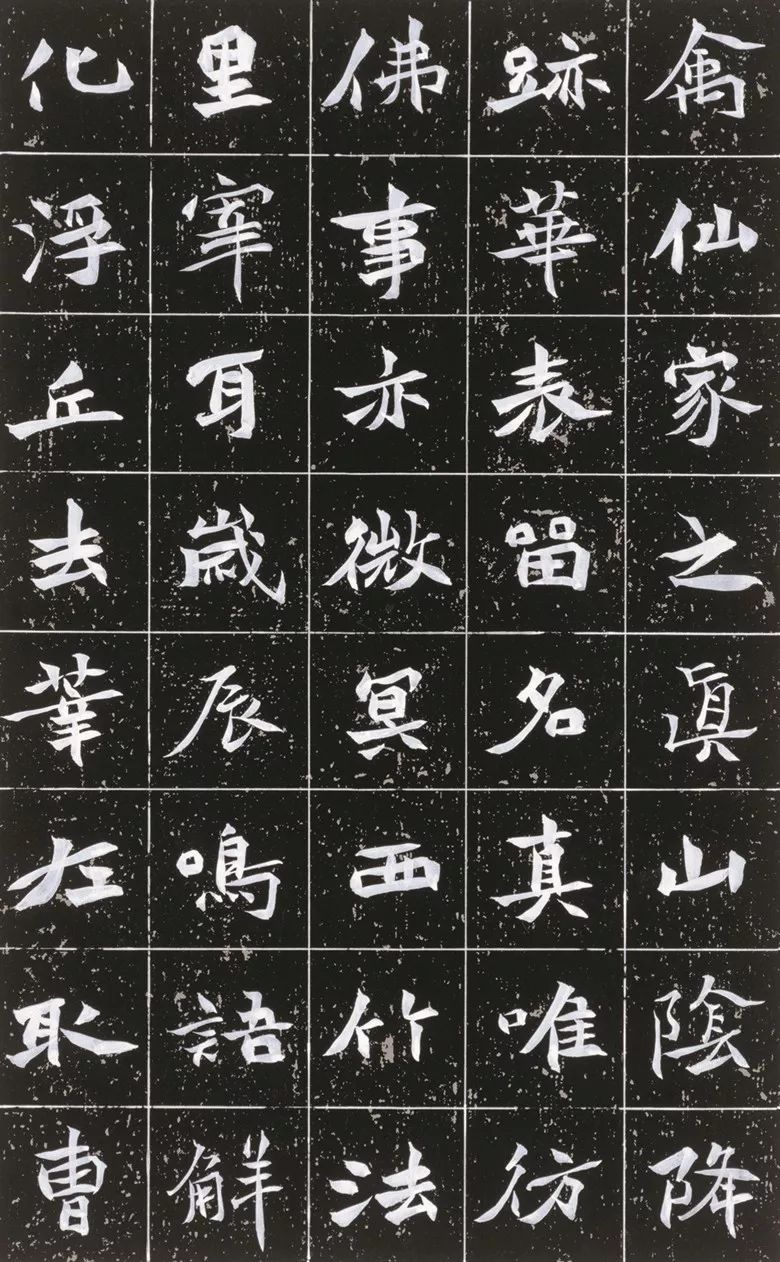 禽仙家之眞山陰降
跡華表留名真唯彷
佛事亦微冥西竹法
里宰耳歲辰鳴語解
化浮丘去莘左取曹